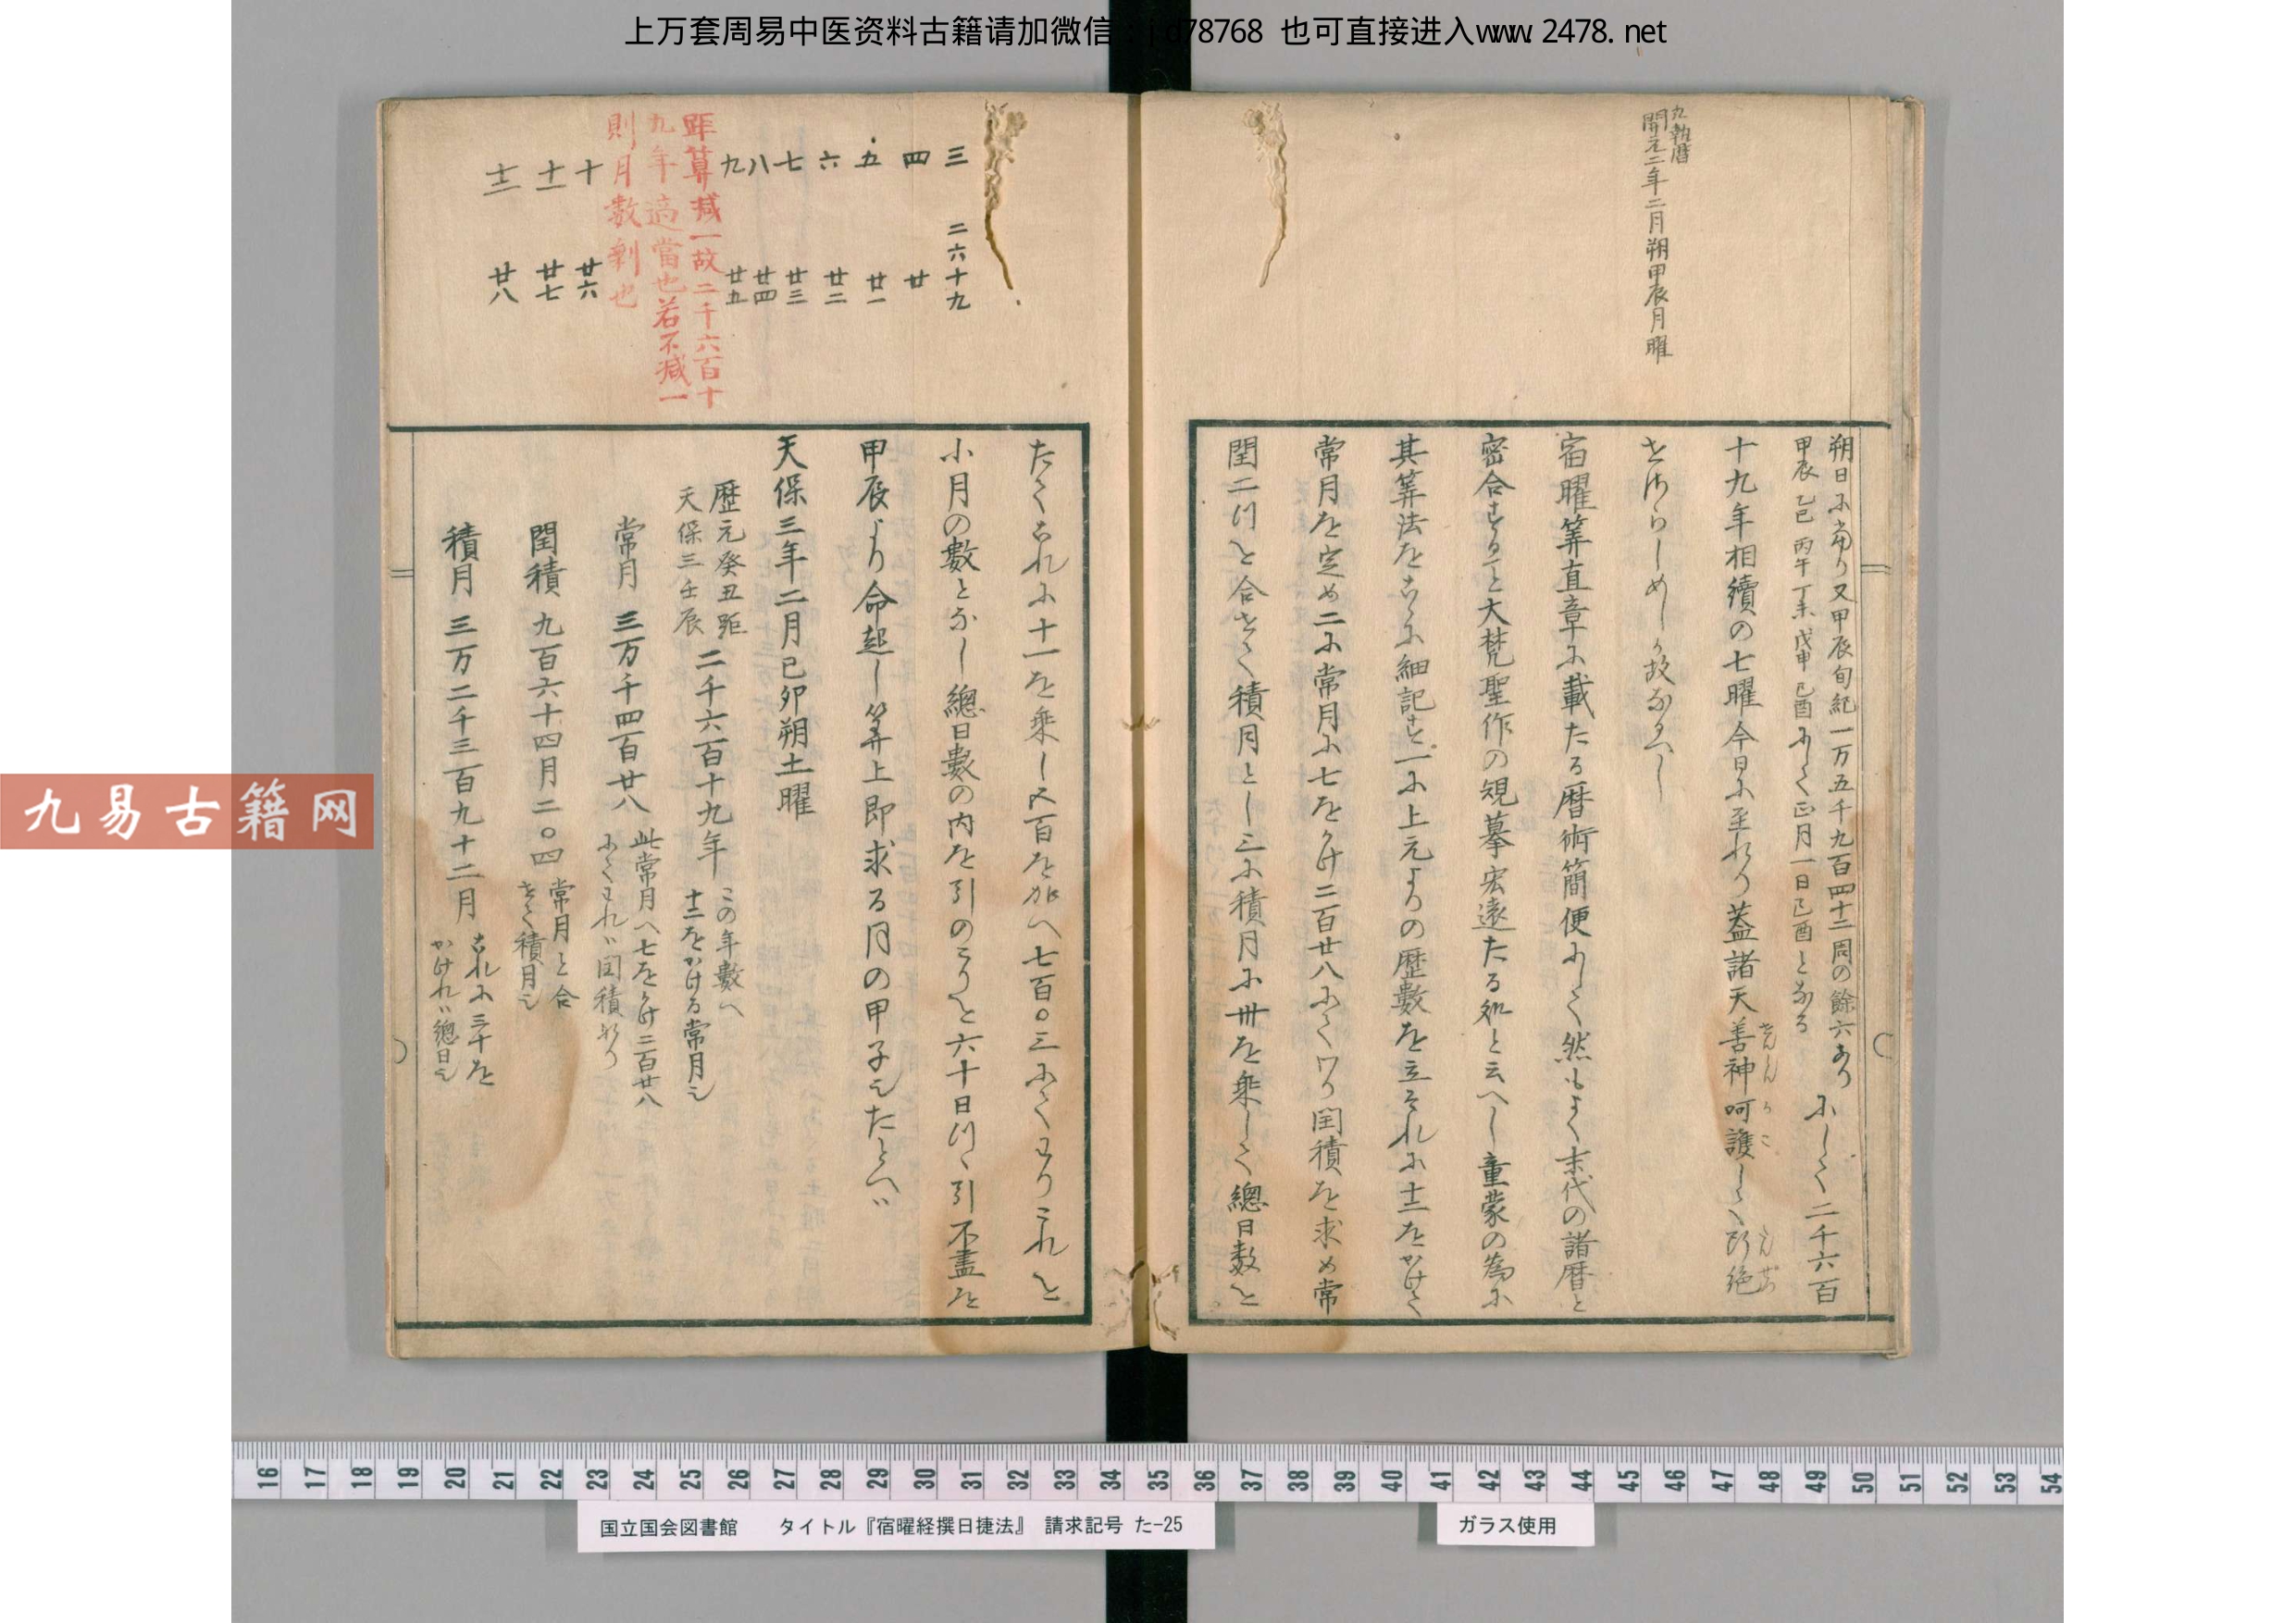 上万套周易中医资料古籍请加微信：jd78768 也可直接进入www.2478.net
九執暦
開元二年二月朔甲辰月曜
朔日に當り又甲辰旬紀一万五千九百四十二周の餘六あり
甲辰 乙巳 丙午 丁未 戊申 己酉にして正月一日己酉となる
にして二千六百
十九年相續の七曜今日に至れり蓋諸天善神呵護して断絶
ぜんしん かご だんぜつ
せさらしめしか故なるへし
宿曜筭直章に載たる暦術簡便にして然もよく末代の諸暦と
密合すること大梵聖作の規摹宏遠たる処と云へし童蒙の為に
其筭法をこゝに細記す一に上元よりの歴數を立それに十二をかけて
常月を定め二に常月に七をかけ二百廿八にてわり閏積を求め常
閏二つを合せて積月とし三に積月に卅を乗して總日数を
三 二六十九
四 廿
五 廿一
六 廿二
七 廿三
八 廿四
九 廿五
距算减一故二千六百十
九年適當也若不减一
則月數剰也
十 廿六
十一 廿七
十二 廿八
たてこれに十一を乗し又百を加へ七百〇三にてわりこれを
小月の數となし總日數の内を引のこりを六十日つゝ引不盡を
甲辰より命起し筭上即求る月の甲子也たとへハ
天保三年二月己卯朔土曜
歴元癸丑距
天保三壬辰
二千六百十九年
この年數へ
十二をかける常月也
常月 三万千四百廿八
此常月へ七をかけ二百廿八
にてわれハ閏積なり
閏積 九百六十四月二〇四
常月と合
せて積月也
積月 三万二千三百九十二月
これに三十を
かけれハ總日也
九易古籍网
16 17 18 19 20 21 22 23 24 25 26 27 28 29 30 31 32 33 34 35 36 37 38 39 40 41 42 43 44 45 46 47 48 49 50 51 52 53 54
国立国会図書館 タイトル『宿曜経撰日捷法』 請求記号 た-25
ガラス使用